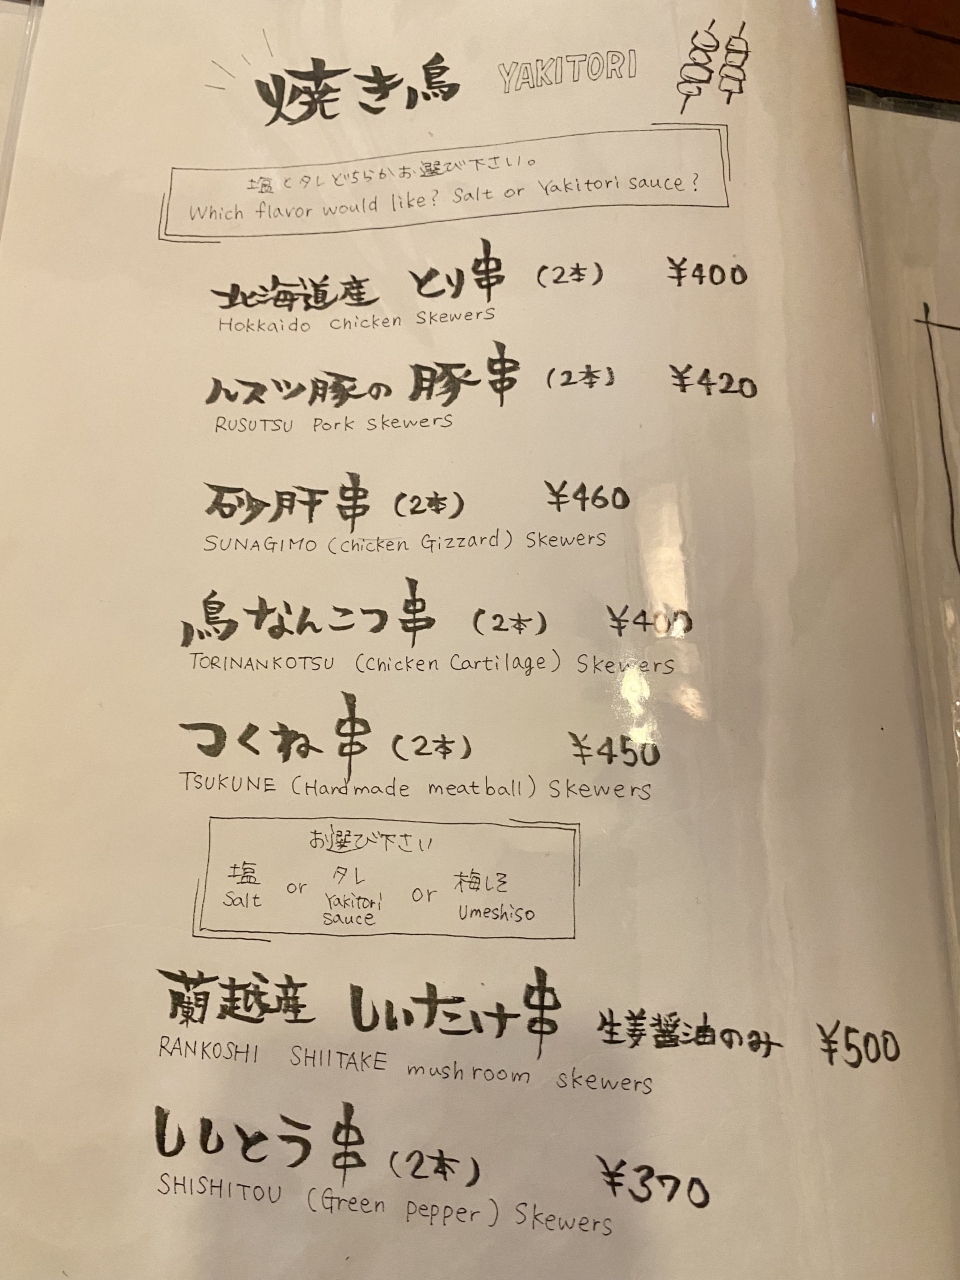 焼き鳥 YAKITORI
塩とタレどちらかお選び下さい。
Which flavor would like? Salt or Yakitori sauce?
北海道産 とり串 (2本) ¥400
Hokkaido chicken Skewers
ルスツ豚の豚串 (2本) ¥420
RUSUTSU Pork skewers
砂肝串 (2本) ¥460
SUNAGIMO (chicken Gizzard) Skewers
鳥なんこつ串 (2本) ¥400
TORINANKOTSU (Chicken Cartilage) Skewers
つくね串 (2本) ¥450
TSUKUNE (Handmade meatball) Skewers
お選び下さい
塩 or タレ or 梅しそ
Salt Yakitori sauce Umeshiso
蘭越産 しいたけ串 生姜醤油のみ ¥500
RANKOSHI SHIITAKE mushroom skewers
ししとう串 (2本) ¥370
SHISHITOU (Green pepper) Skewers